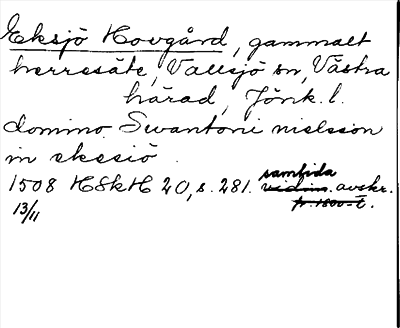 Eksjö Hovgård, gammalt
herresäte, Vallsjö sn, Västra
härad, Jönk. l.
domino Swantoni nielsson
in ekesiö.
1508 HSkH 20, s. 281. samtida
vidim. avskr.
13/11 fr. 1800-t.